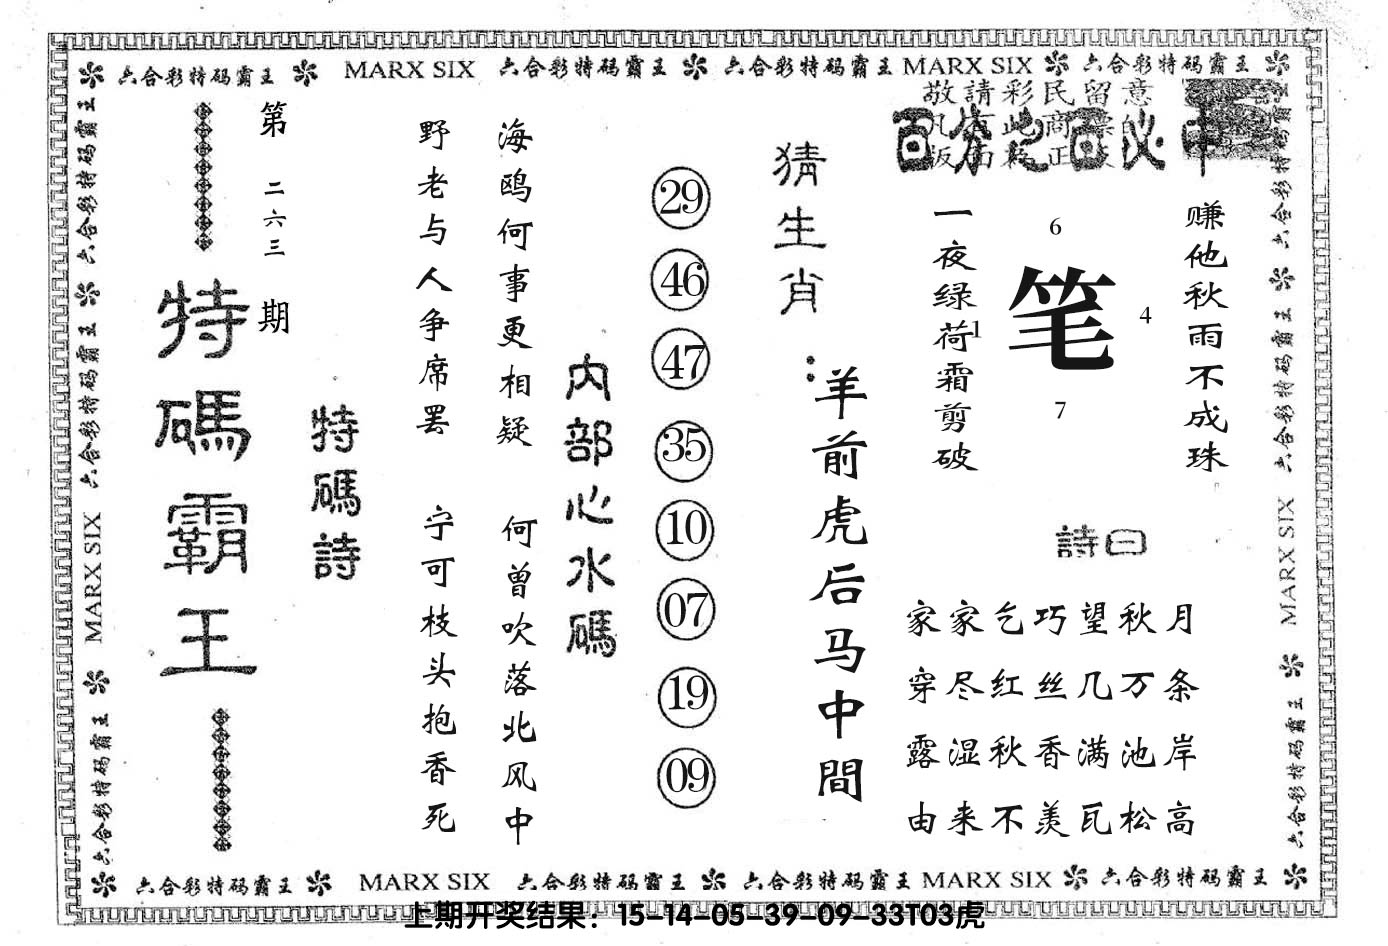 六合彩特码霸王 MARX SIX 六合彩特码霸王 六合彩特码霸王 MARX SIX 六合彩特码霸王
敬請彩民留意
百分之百必中
第二六三期
特碼霸王
特碼詩
野老与人争席罢
海鸥何事更相疑
宁可枝头抱香死
何曾吹落北风中
内部心水碼
29
46
47
35
10
07
19
09
猜生肖:
羊前虎后马中間
赚他秋雨不成珠
一夜绿荷霜剪破
6
笔
1
4
7
詩曰
家家乞巧望秋月
穿尽红丝几万条
露湿秋香满池岸
由来不羡瓦松高
六合彩特码霸王 MARX SIX 六合彩特码霸王
六合彩特码霸王 MARX SIX 六合彩特码霸王
六合彩特码霸王 MARX SIX 六合彩特码霸王 六合彩特码霸王 MARX SIX 六合彩特码霸王
上期开奖结果：15-14-05-39-09-33T03虎